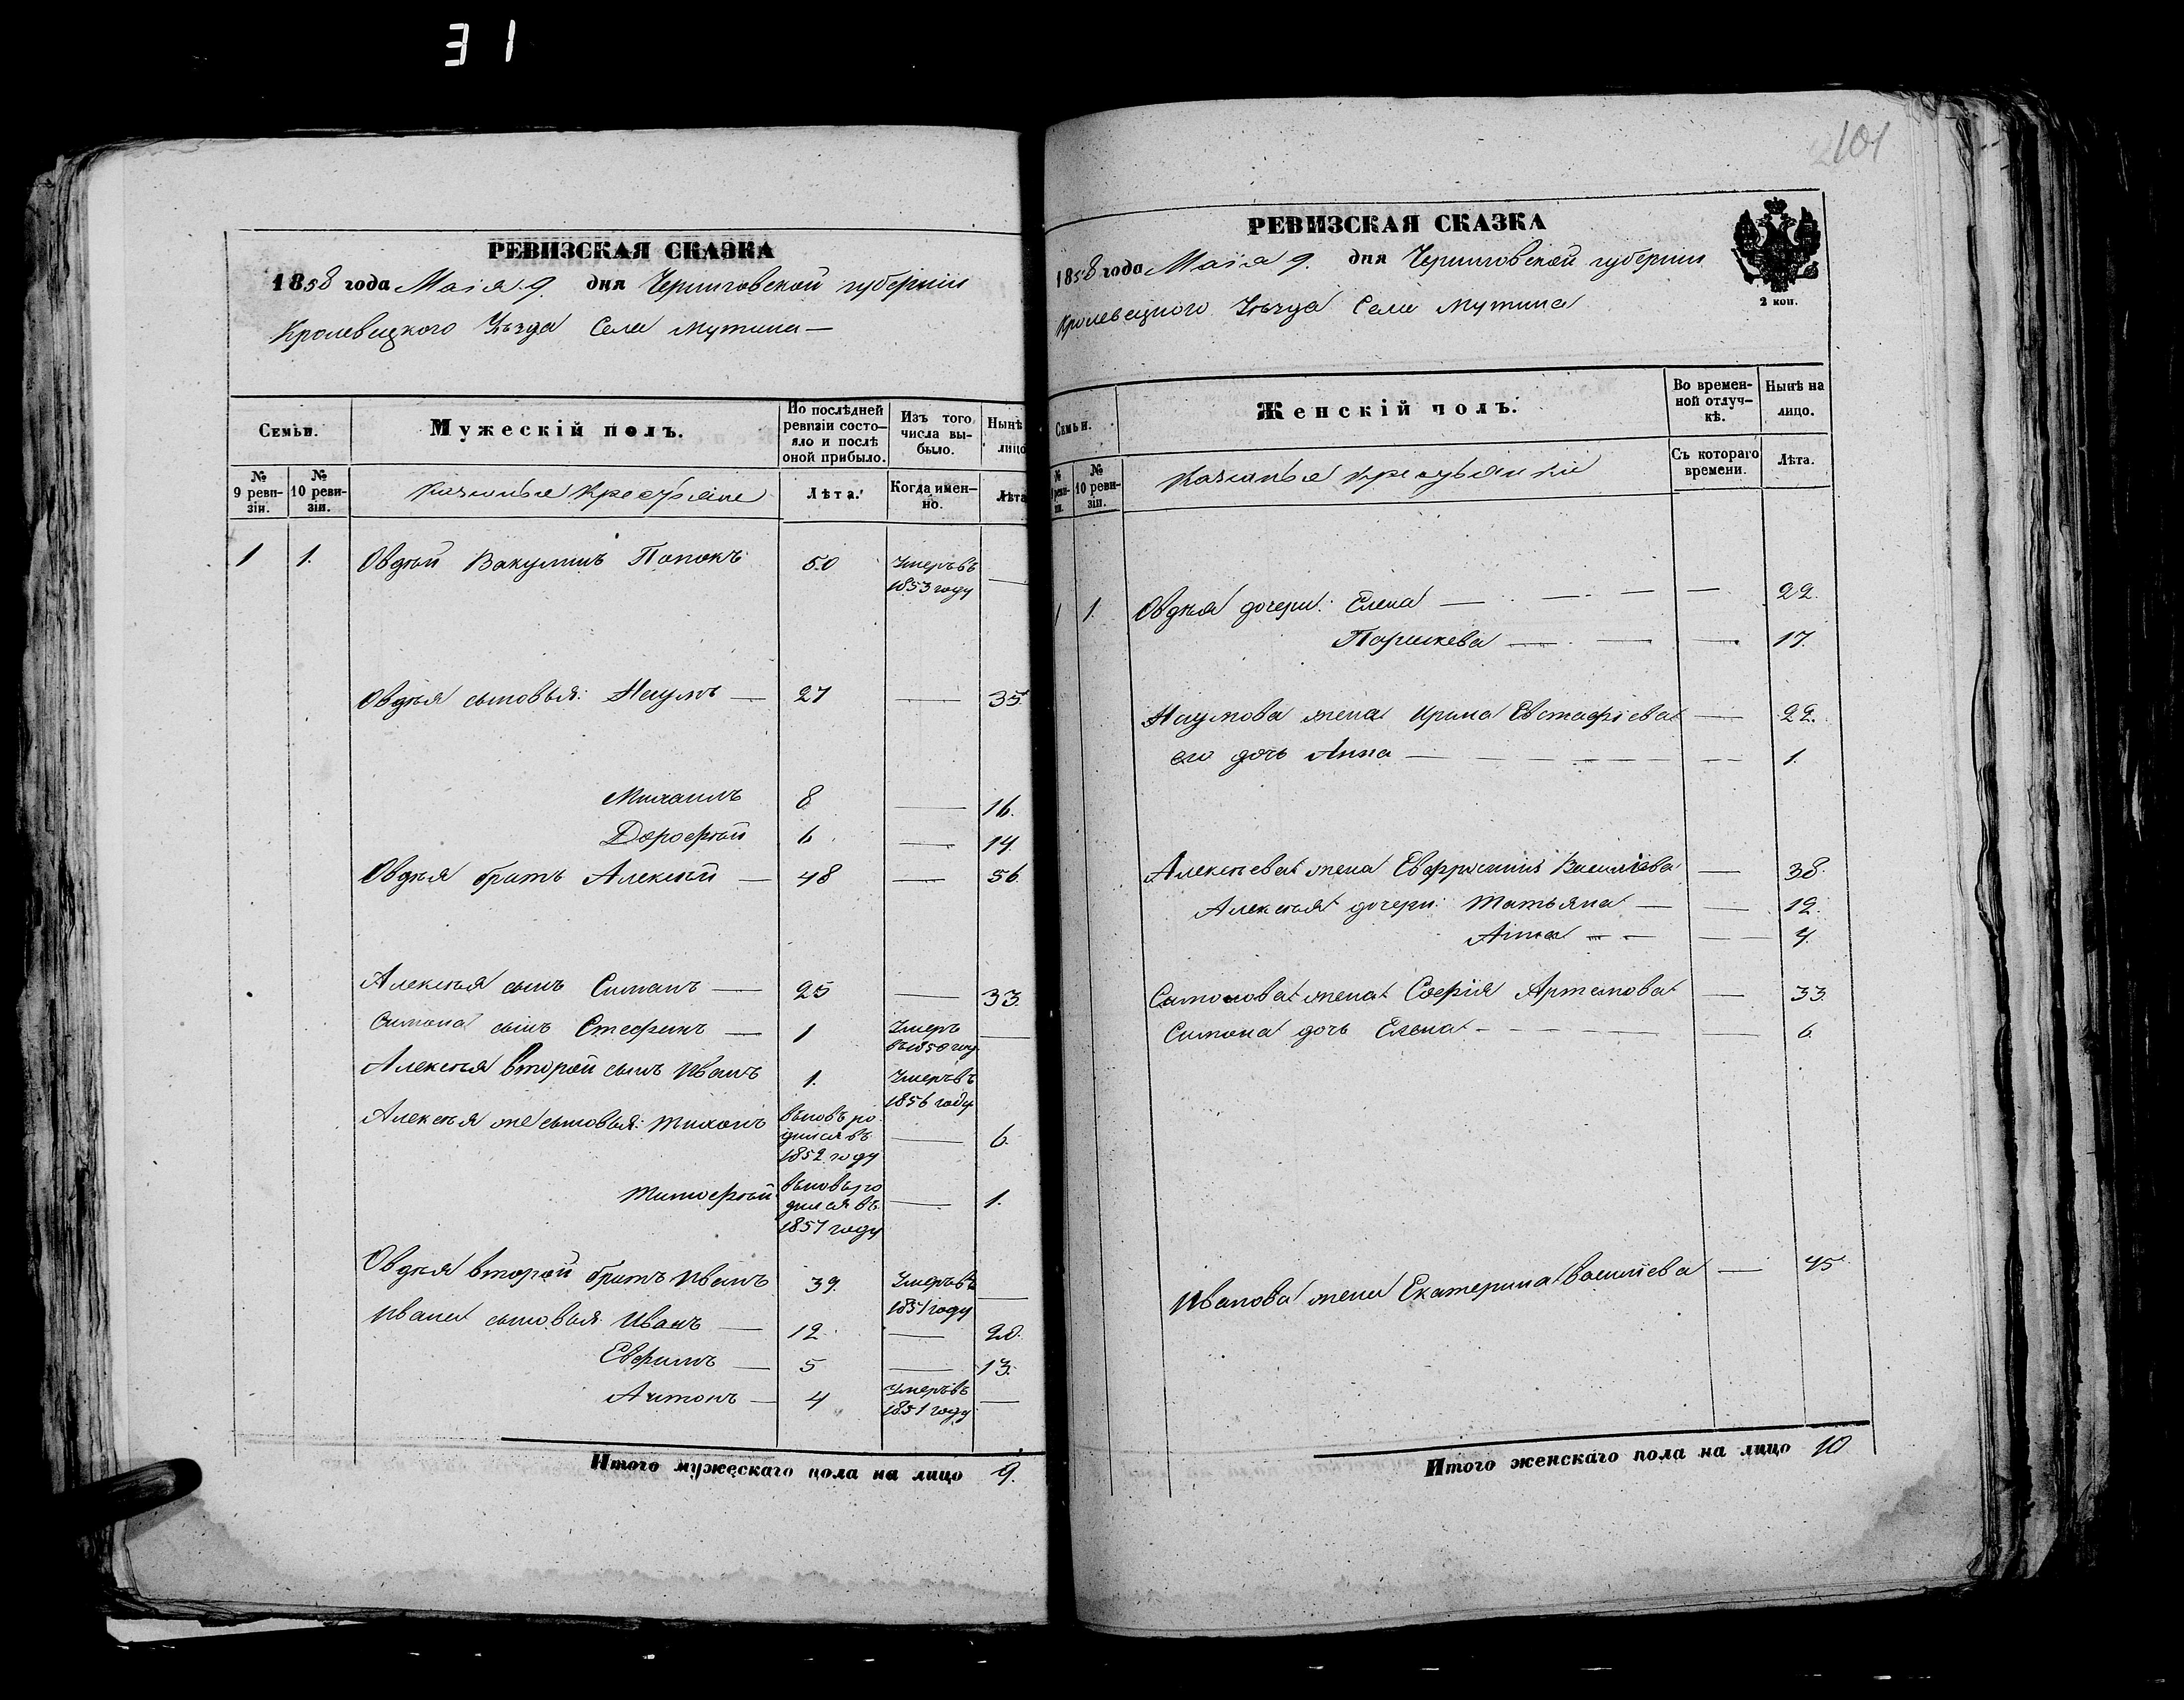 31
РЕВИЗСКАЯ СКАЗКА
1858 года Маія 9. дня Черниговской губерніи
Кролевецкого Уѣзда Села Мутина —
Семьи.
Мужескій полъ.
По послѣдней ревизіи состояло и послѣ оной прибыло.
Изъ того числа выбыло.
Нынѣ лицо
№ 9 ревизіи.
№ 10 ревизіи.
Казенные Крестьяне
Лѣта.
Когда именно.
Лѣта
1 1. Овдѣй Вакулинъ Попокъ 50 Умеръ въ 1853 году —
Овдѣя сыновья: Наумъ — 27 — 35
Михаилъ 8 — 16.
Дорофѣй 6 — 14.
Овдѣя братъ Алексѣй — 48 — 56
Алексѣя сынъ Симонъ — 25 — 33
Симона сынъ Стефанъ — 1 Умеръ въ 1850 году —
Алексѣя второй сынъ Иванъ 1. Умеръ въ 1856 году
Алексѣя же сыновья: Тихонъ вновь родился въ 1852 году — 6.
Тимофѣй вновь родился въ 1857 году — 1.
Овдѣя второй братъ Иванъ 39. Умеръ въ 1851 году —
Ивана сыновья Иванъ — 12 — 20.
Евфимъ — 5 — 13.
Антонъ — 4 Умеръ въ 1851 году —
Итого мужескаго пола на лицо 9.
101
РЕВИЗСКАЯ СКАЗКА
1858 года Маія 9. дня Черниговской губерніи
Кролевецкого Уѣзда Села Мутина
2 коп.
Семьи.
Женскій полъ.
Во временной отлучкѣ.
Нынѣ на лицо.
№ 10 ревизіи.
Казенные крестьянкіе
Съ котораго времени.
Лѣта.
1 1. Овдѣя дочери: Елена — — — — 22.
Параскева — — — 17.
Наумова жена Ирина Евстафіева — 22.
его дочь Анна — — — 1.
Алексѣева жена Евфросинія Василіева — 38.
Алексѣя дочери: Татьяна — — 12.
Анна — — — 4.
Симонова жена Софія Артемова — 33.
Симона дочь Елена — — — 6.
Иванова жена Екатерина Василіева — 45
Итого женскаго пола на лицо 10